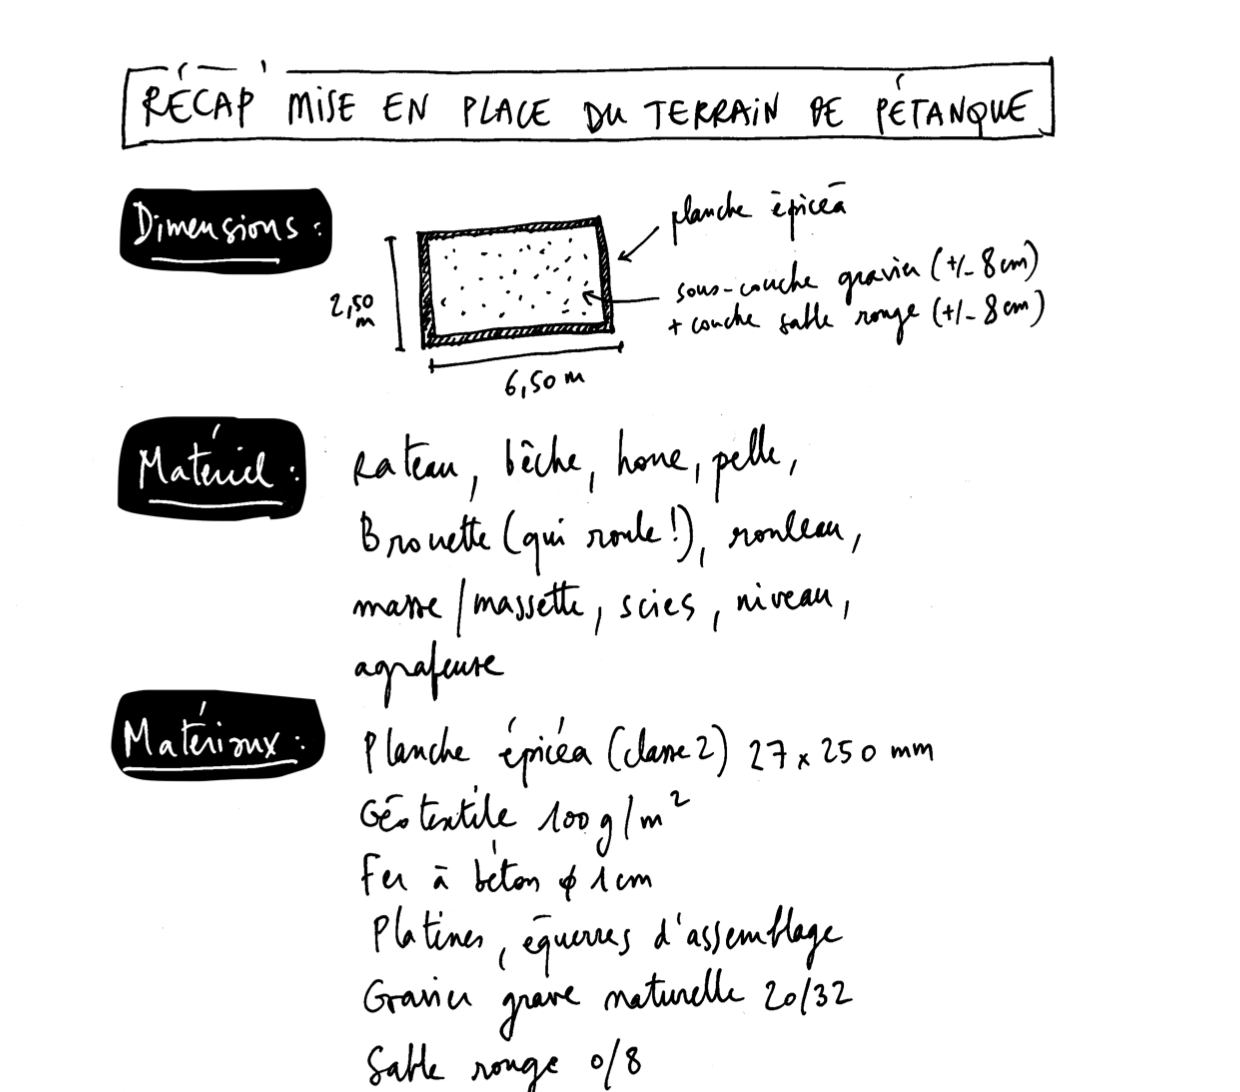 RÉCAP MISE EN PLACE DU TERRAIN DE PÉTANQUE
Dimensions :
planche épicéa
sous-couche gravier (+/- 8 cm)
+ couche sable rouge (+/- 8 cm)
2,50
m
6,50 m
Matériel :
Rateau, bêche, houe, pelle,
Brouette (qui roule !), rouleau,
masse / massette, scies, niveau,
agrafeuse
Matériaux :
Planche épicéa (classe 2) 27 x 250 mm
Géotextile 100 g/m²
Fer à béton ϕ 1 cm
Platines, équerres d'assemblage
Gravier grave naturelle 20/32
Sable rouge 0/8